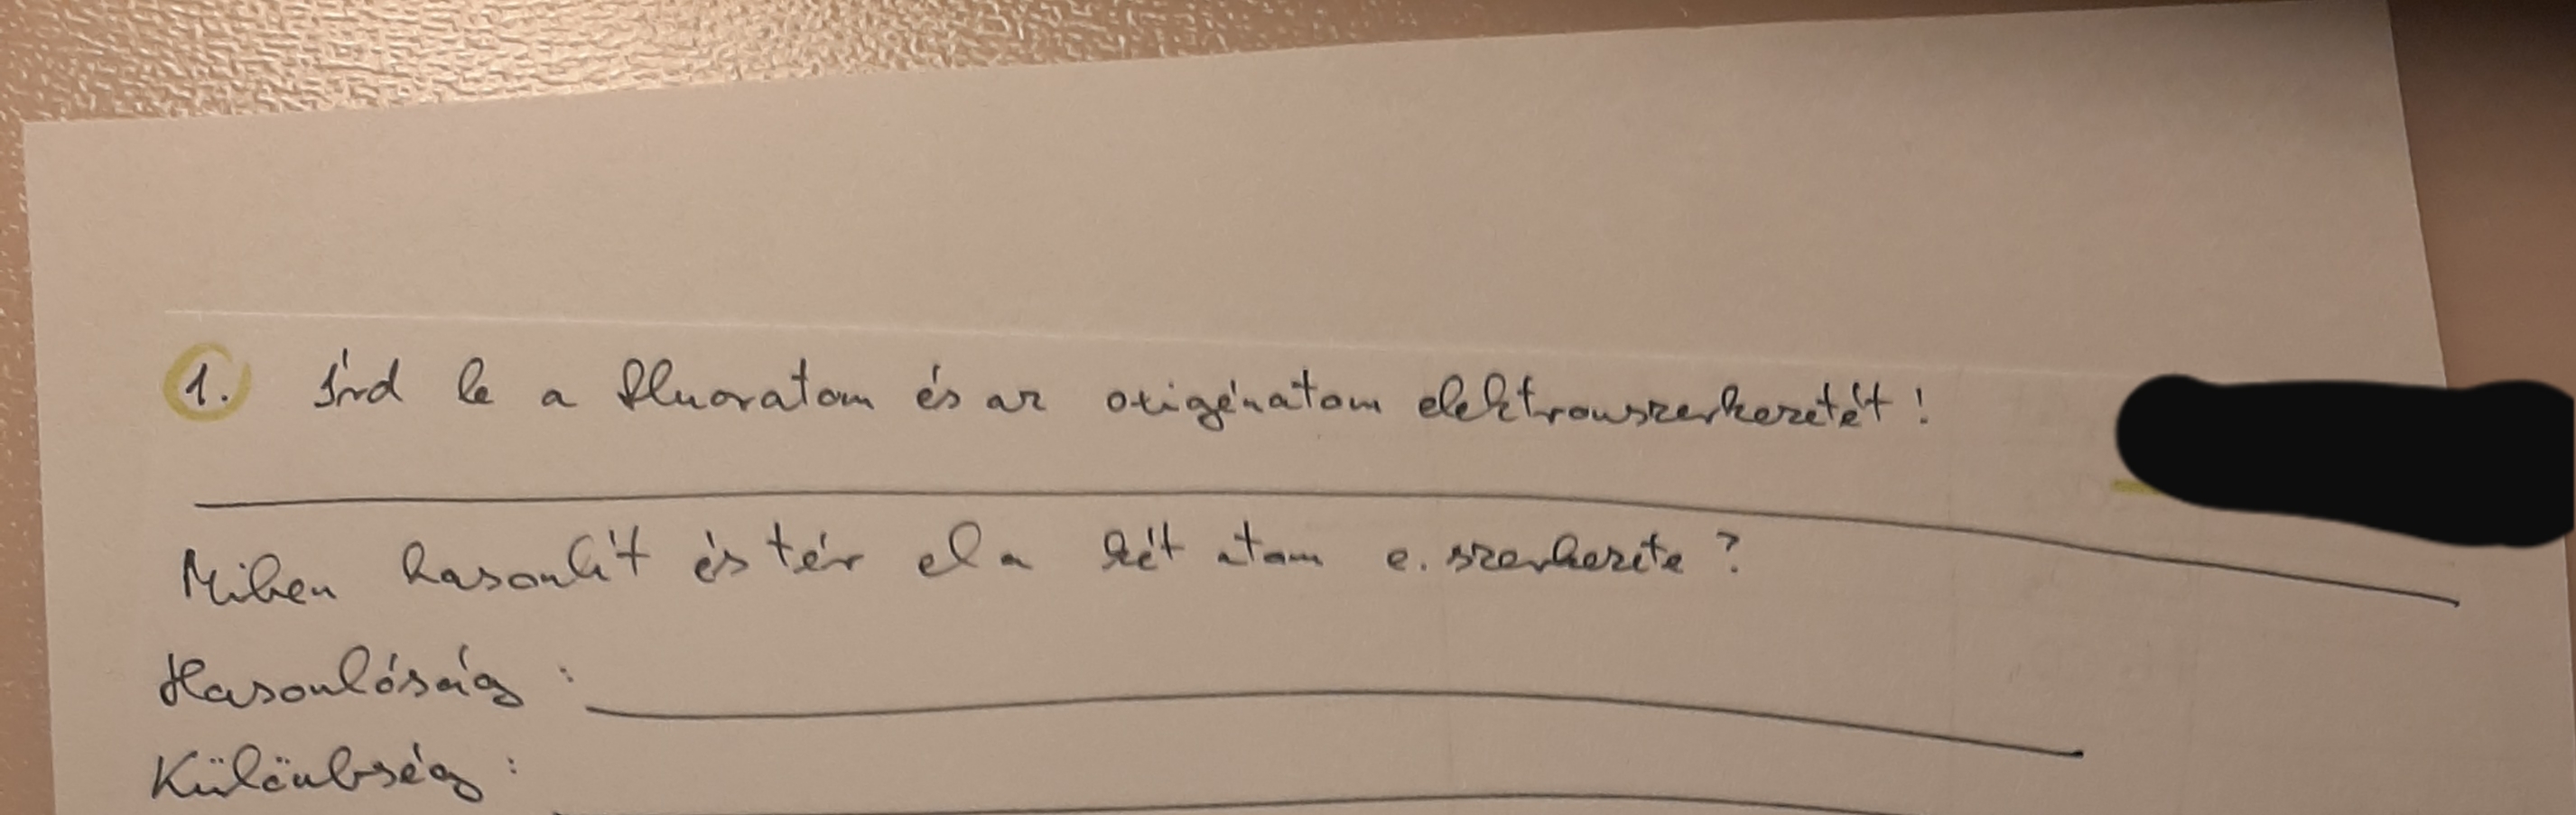 1. Írd le a fluoratom és az oxigénatom elektronszerkezetét!
Miben hasonlít és tér el a két atom e. szerkezete?
Hasonlóság:
Különbség: